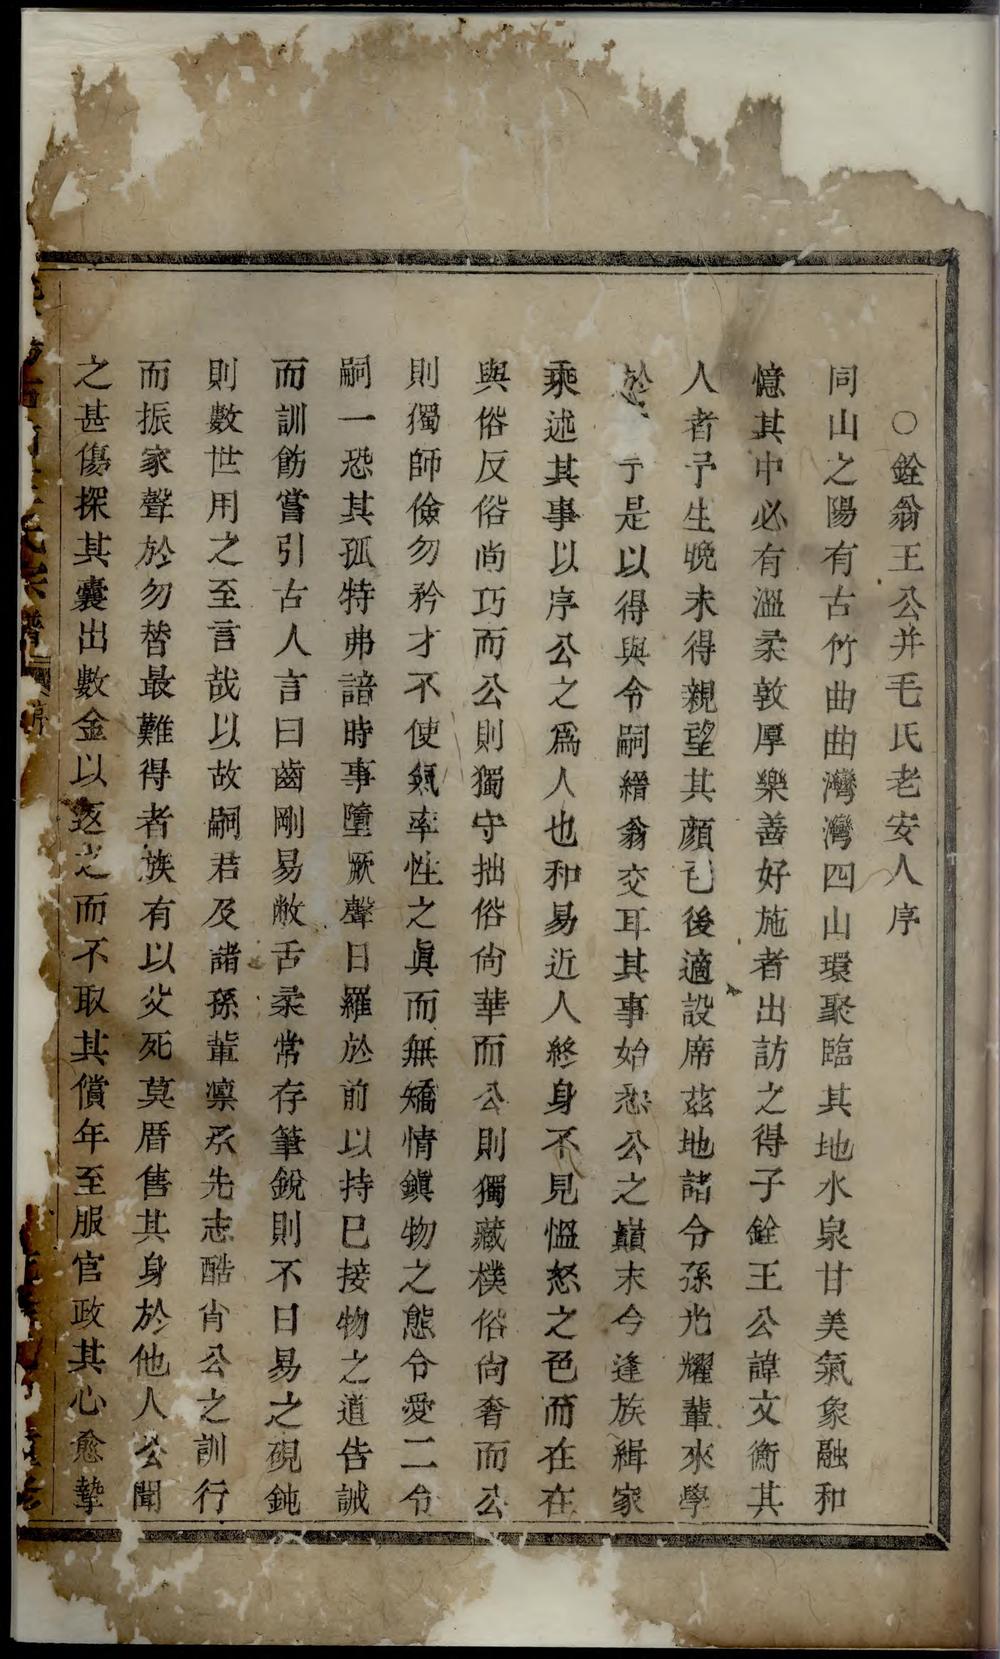 ○銓翁王公并毛氏老安人序
同山之陽有古竹曲曲灣灣四山環聚臨其地水泉甘美氣象融和
憶其中必有溫柔敦厚樂善好施者出訪之得子銓王公諱文衡其
人者予生晚未得親望其顏色後適設席茲地諸令孫光耀輩來學
於予是以得與令嗣縉翁交耳其事始悉公之巔末今逢族緝家
乘述其事以序公之爲人也和易近人終身不見慍怒之色而在在
與俗反俗尚巧而公則獨守拙俗尚華而公則獨藏樸俗尚奢而公
則獨師儉勿矜才不使氣率性之眞而無矯情鎭物之態令愛二令
嗣一恐其孤特弗諳時事墮厥聲日羅於前以持已接物之道告誡
而訓飭嘗引古人言曰齒剛易敝舌柔常存筆銳則不日易之硯鈍
則數世用之至言哉以故嗣君及諸孫輩凛承先志酷肖公之訓行
而振家聲於勿替最難得者族有以父死莫厝售其身於他人公聞
之甚傷探其囊出數金以返之而不取其償年至服官政其心愈摯
氏宗譜 序